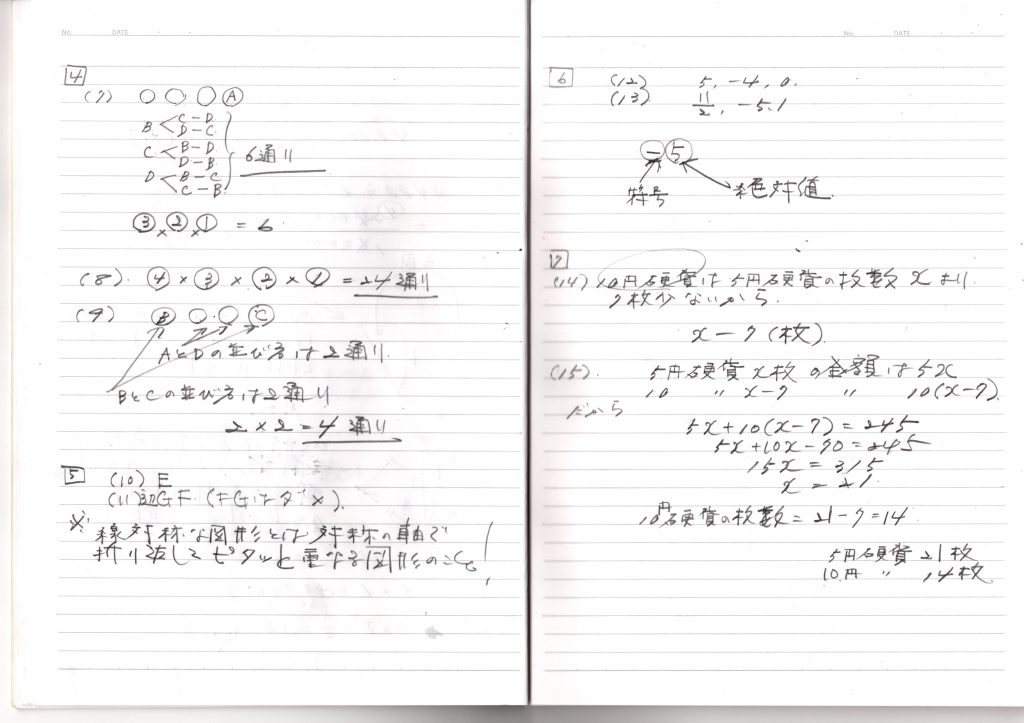 No. DATE
4
(7) ○ ○ ○ Ⓐ
B < C-D
D-C
C < B-D
D-B
D < B-C
C-B
6通り
③×②×① = 6
(8). ④ × ③ × ② × ① = 24通り
(9) Ⓑ ○ ○ Ⓒ
AとDの並び方は2通り
BとCの並び方は2通り
2×2=4通り
5 (10) E
(11) 辺GF (FGはダメ).
※ 線対称な図形とは対称の軸で
折り返してピタッと重なる図形のこと!
No. DATE
6 (12) 5, -4, 0.
(13) 11/2, -5.1
- 5
符号 絶対値
7
(14) 10円硬貨は5円硬貨の枚数 x より
7枚少ないから.
x-7(枚)
(15). 5円硬貨 x枚 の金額は5x
10 〃 x-7 〃 10(x-7)
だから
5x+10(x-7)=245
5x+10x-70=245
15x=315
x=21
10円硬貨の枚数=21-7=14
5円硬貨 21枚
10円 〃 14枚